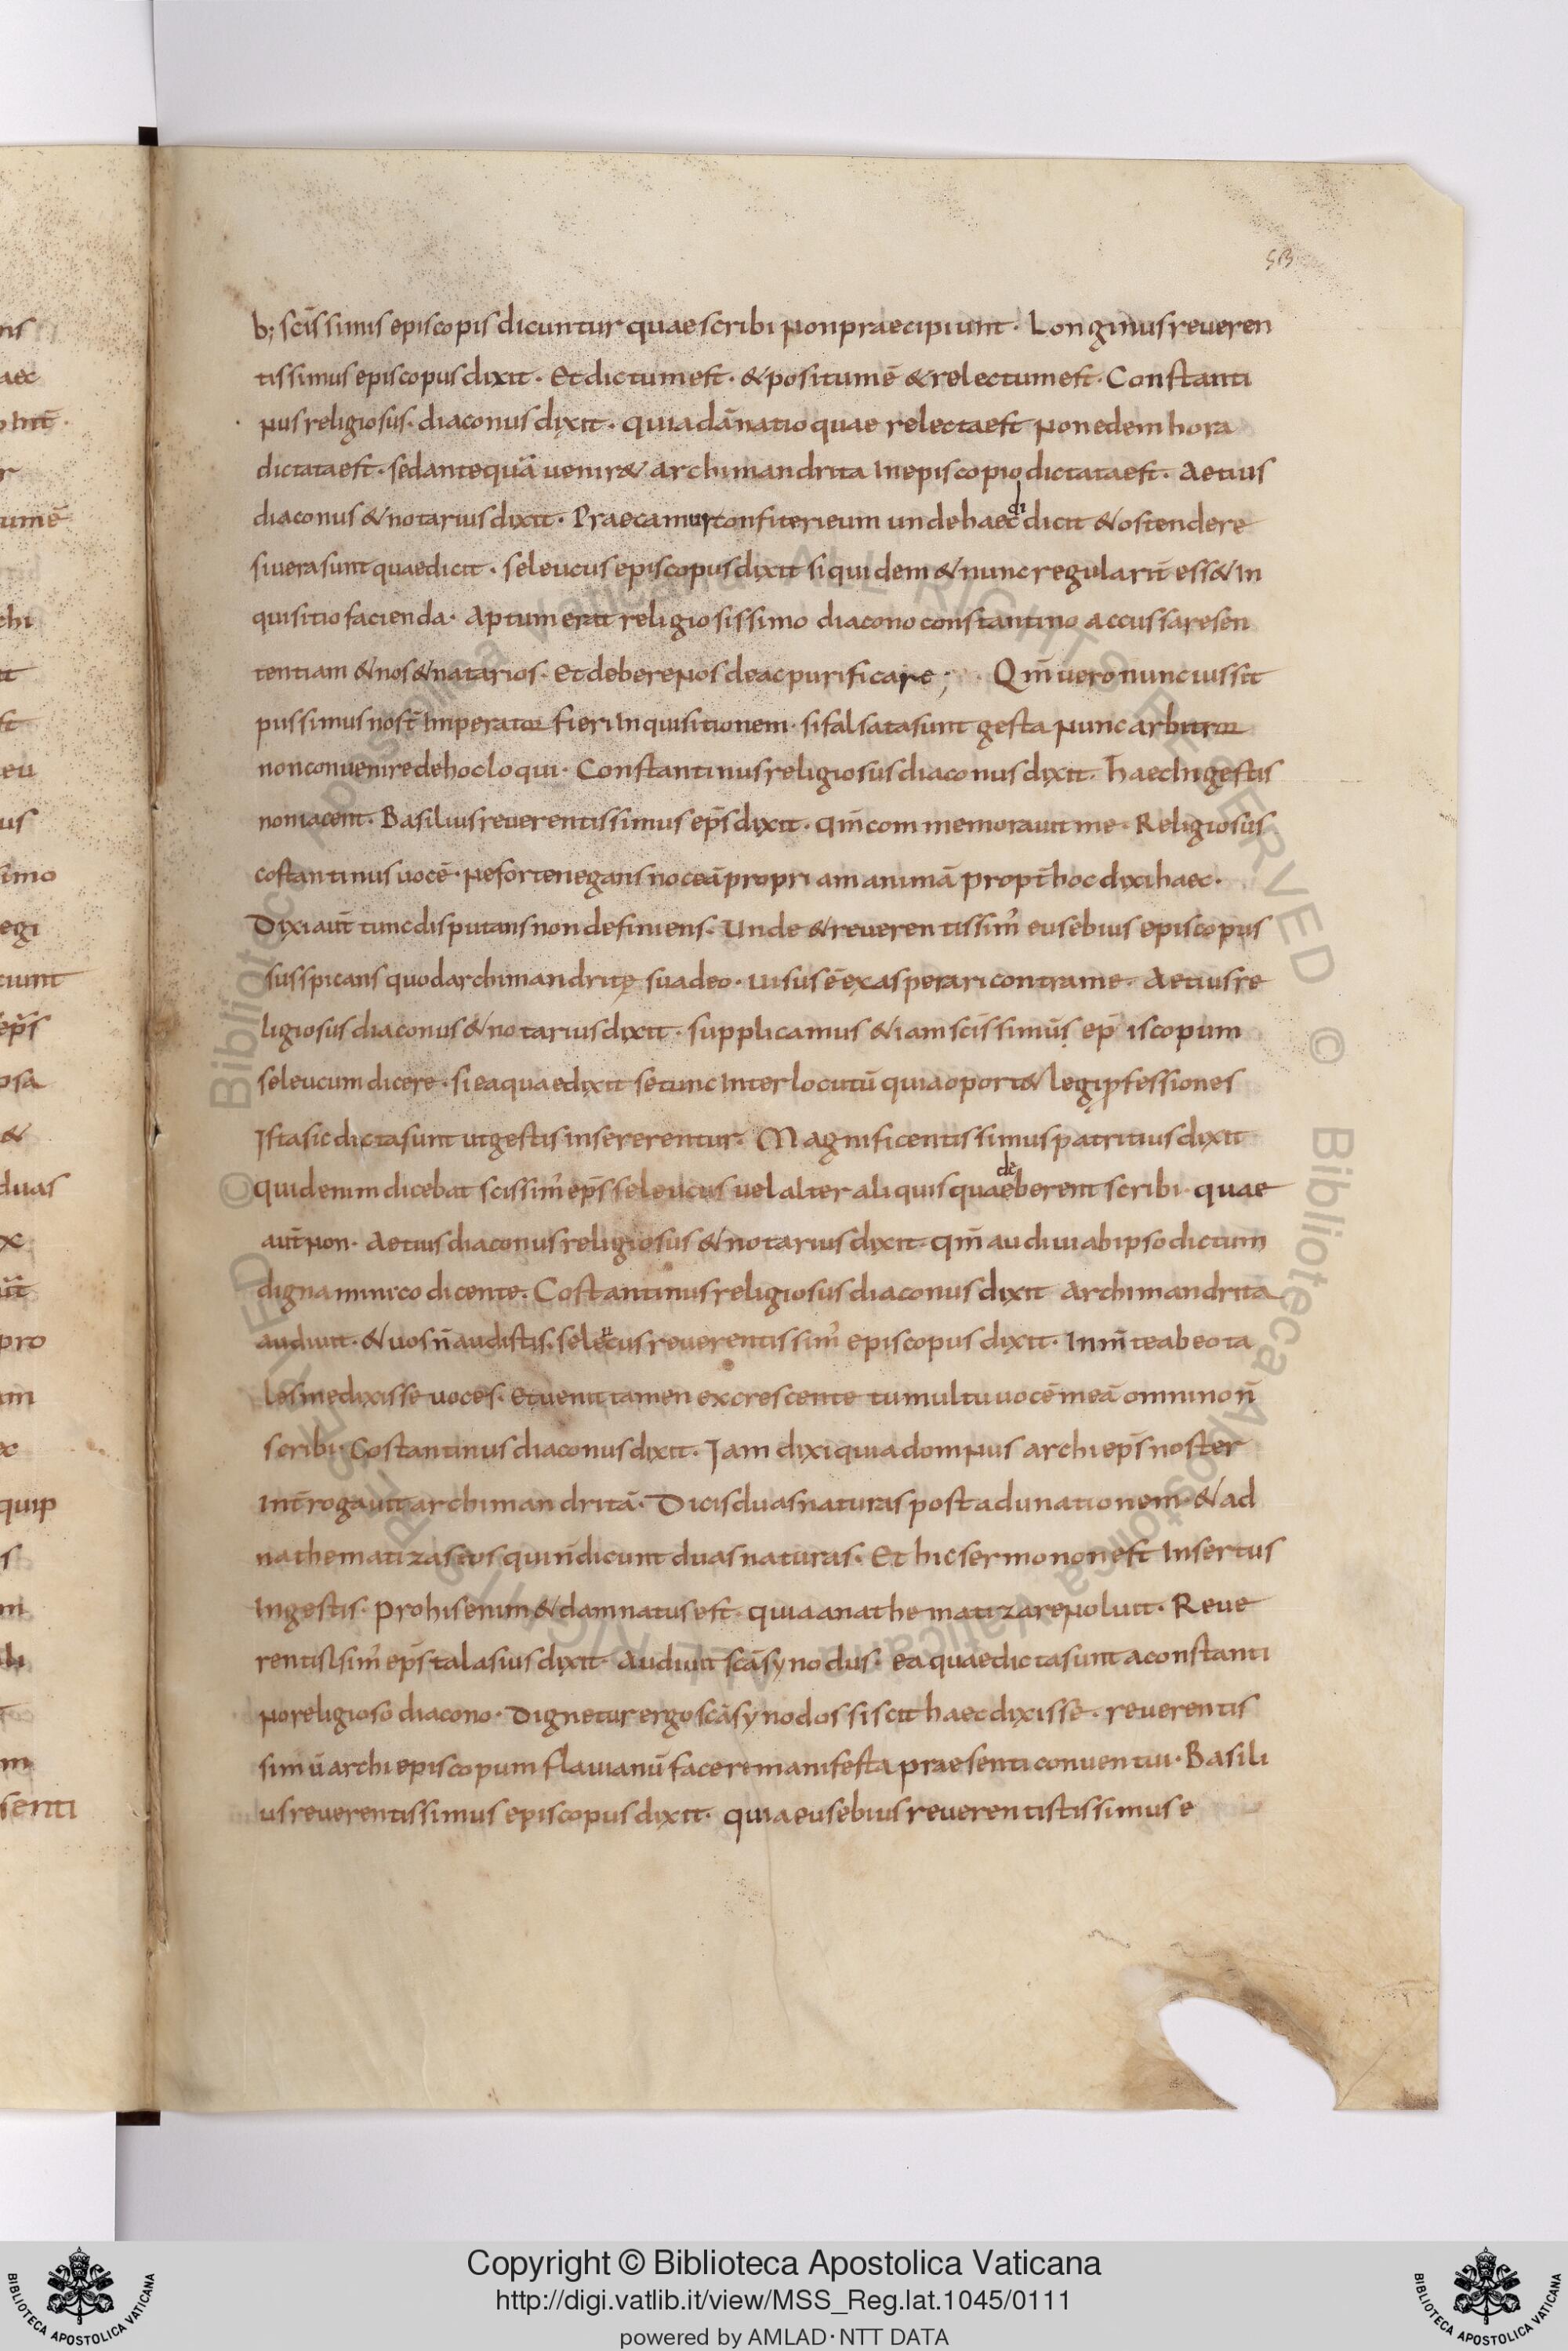 53
b; scīssimis episcopis dicuntur quae scribi non praecipiunt· Longinus reueren
tissimus episcopus dixit· Et dictum est· & positum ē & relectum est· Constanti
nus religiosus· diaconus dixit· quia dānatio quae relecta est non edem hora
dictata est· sed antequā uenir& archimandrita In episcopio dictata est· Aetius
diaconus & notarius dixit· Praecamur confiteri eum unde haec di dicit & ostendere
si uera sunt quae dicit· seleucus episcopus dixit si quidem & nunc regularit ess& In
quisitio facienda· Aptum erat religiosissimo diacono constantino accussare sen
tentiam & nos & natarios· Et debere nos deac purificare; Qm̄ uero nunc iussit
pussimus nost̄ Imperator fieri Inquisitionem· si falsata sunt gesta nunc arbitror
non conuenire de hoc loqui· Constantinus religiosus diaconus dixit· haec In gestis
non iacent· Basilius reuerentissimus ep̄s dixit· qm̄ commemorauit me· Religiosus
costantinus uocē· ne forte negans noceā propriam animā propt̄ hoc dixi haec·
Dixi aut̄ tunc disputans non definiens· Unde & reuerentissim̄ eusebius episcopus
susspicans quod archimandritę suadeo· uisus ē exasperari contra me· Aetius re
ligiosus diaconus & notarius dixit· supplicamus & iam scīssimūs ep̄iscopum
seleucum dicere· si ea quae dixit se tunc Interlocutū quia oport& legi pfessiones
Ista sic dicta sunt ut gestis insererentur· Magnificentissimus patritius dixit
quid enim dicebat scissim̄ ep̄s seleucus uel alter aliquis quae deberent scribi· quae
aut̄ non· Aetius diaconus religiosus & notarius dixit· qm̄ audiui ab ipso dictum
digna inimico dicente· Costantinus religiosus diaconus dixit Archimandrita
audiuit· & uos n̄ audistis· seleucus reuerentissim̄ episcopus dixit· In m̄te abeo ta
les me dixisse uoces· et uenit tamen excrescente tumultu uocē meā omnino n̄
scribi· Costantinus diaconus dixit· Iam dixi quia domnus archiep̄s noster
Int̄rogauit archimandritā· Dicis duas naturas post adunationem· & ad
nathematizas eos qui n̄ dicunt duas naturas· Et hic sermo non est Insertus
In gestis· Pro his enim & damnatus est· quia anathematizare noluit· Reue
rentissim̄ ep̄s talasius dixit· Audiuit scā synodus· ea quae dicta sunt a constanti
no religioso diacono· Dignetur ergo scā synodos si scit haec dixisse· reuerentis
simū archiepiscopum flauianū facere manifesta praesenti conuentui· Basili
us reuerentissimus episcopus dixit· quia eusebius reuerentistissimus e
Copyright © Biblioteca Apostolica Vaticana
http://digi.vatlib.it/view/MSS_Reg.lat.1045/0111
powered by AMLAD·NTT DATA